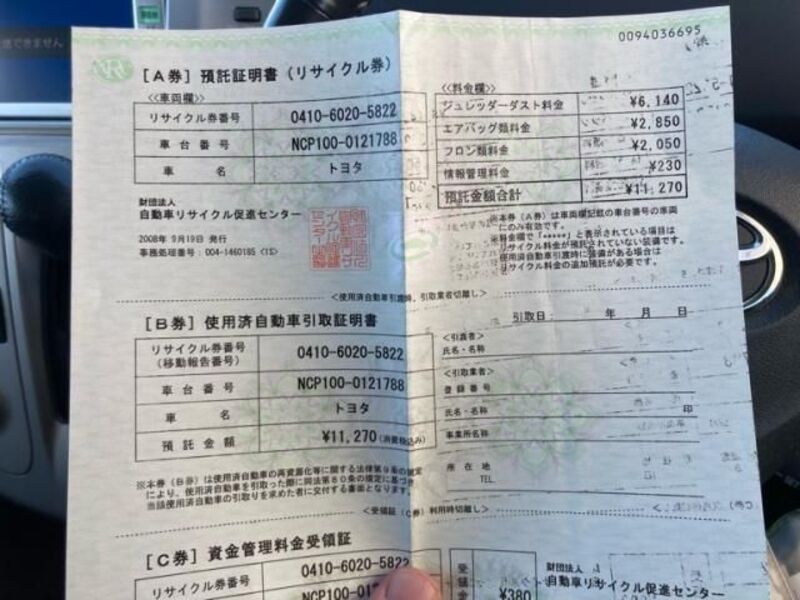 できません
0094036695
［A券］預託証明書（リサイクル券）
≪車両欄≫
リサイクル券番号 0410-6020-5822
車台番号 NCP100-0121788
車名 トヨタ
≪料金欄≫
シュレッダーダスト料金 ¥6,140
エアバッグ類料金 ¥2,850
フロン類料金 ¥2,050
情報管理料金 ¥230
預託金額合計 ¥11,270
財団法人
自動車リサイクル促進センター
2008年 9月19日 発行
事務処理番号：004-1460185 <1S>
※本券（A券）は車両欄記載の車台番号の車両
にのみ有効です。
※料金欄で「*****」と表示されている項目は
リサイクル料金が預託されていない装備です。
使用済自動車引渡時に装備がある場合は
リサイクル料金の追加預託が必要です。
＜使用済自動車引渡時、引取業者切離し＞
［B券］使用済自動車引取証明書
リサイクル券番号
（移動報告番号） 0410-6020-5822
車台番号 NCP100-0121788
車名 トヨタ
預託金額 ¥11,270（消費税込み）
引取日： 年 月 日
＜引渡者＞
氏名・名称
＜引取業者＞
登録番号
氏名・名称 印
事業所名称
所在地
TEL
※本券（B券）は使用済自動車の再資源化等に関する法律第9条の規定
により、使用済自動車を引取った際に同法第80条の規定に基づき
当該使用済自動車の引取りを求めた者に交付する書面となります。
＜受領証（C券）利用時切離し＞
［C券］資金管理料金受領証
リサイクル券番号 0410-6020-5822
NCP100-012
¥380
財団法人
自動車リサイクル促進センター